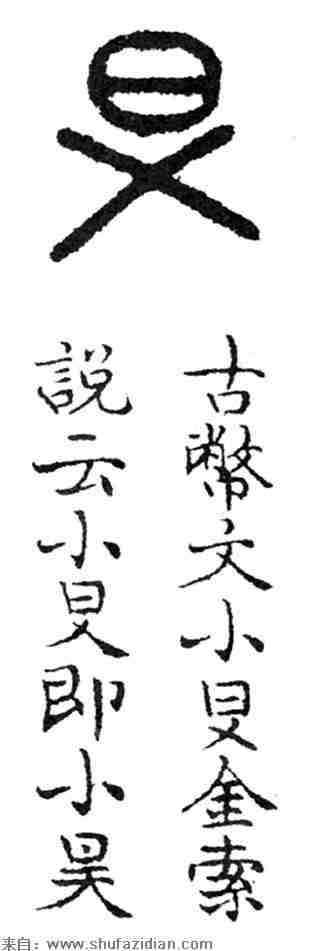 古幣文小金索
說云小即小昊
来自：www.shufazidian.com